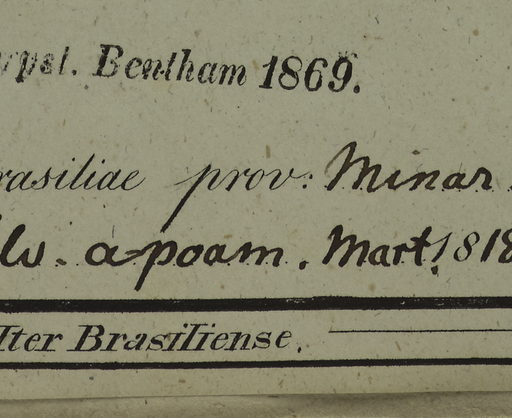 rpst. Bentham 1869.
rasiliae prov: Minar
a-poam. Mart. 1818
Iter Brasiliense.